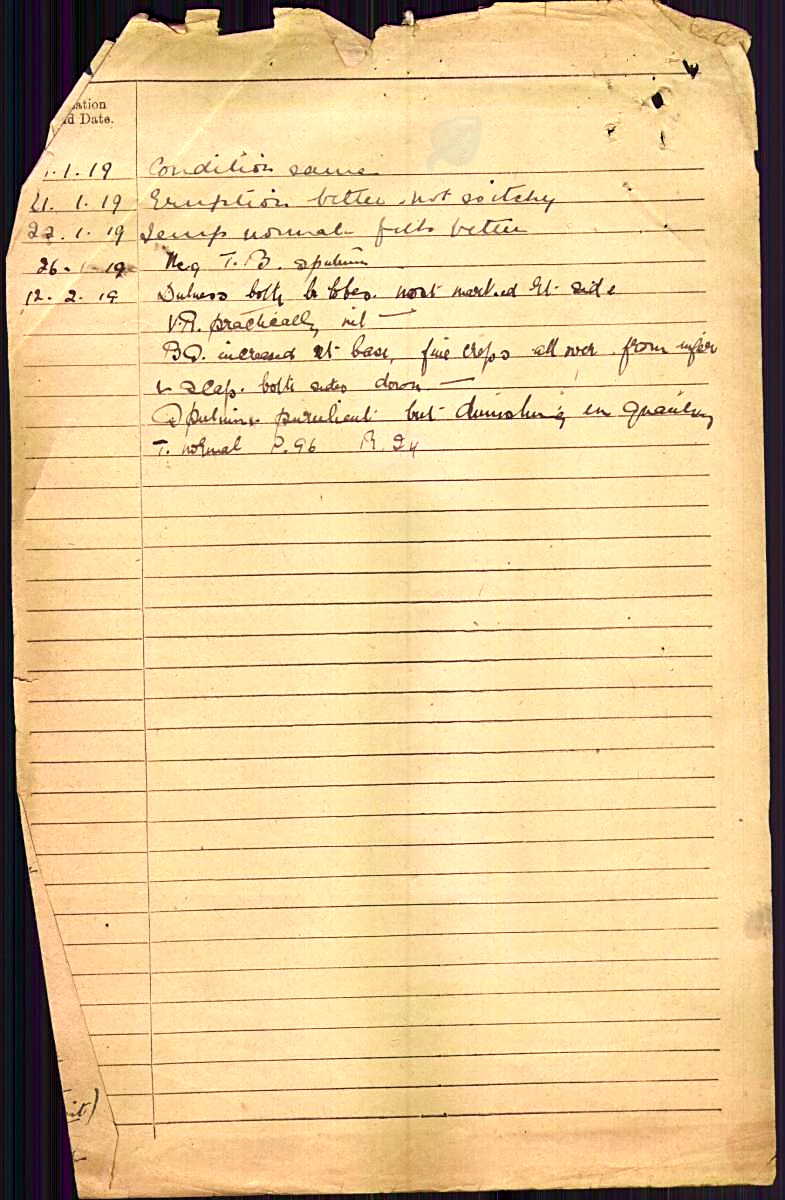 ation
d Date.
1.1.19 Condition same
21.1.19 Eruption better not so itchy
22.1.19 Temp normal feels better
26.1.19 Neg T.B. sputum
12.2.19 Dulness both lr lobes. most marked Rt. side
V.R. practically nil —
B.S. increased rt base, fine creps all over from infer
r scap. both sides down —
Sputum purulent but diminishing in quantity
T. normal P.96 R.24